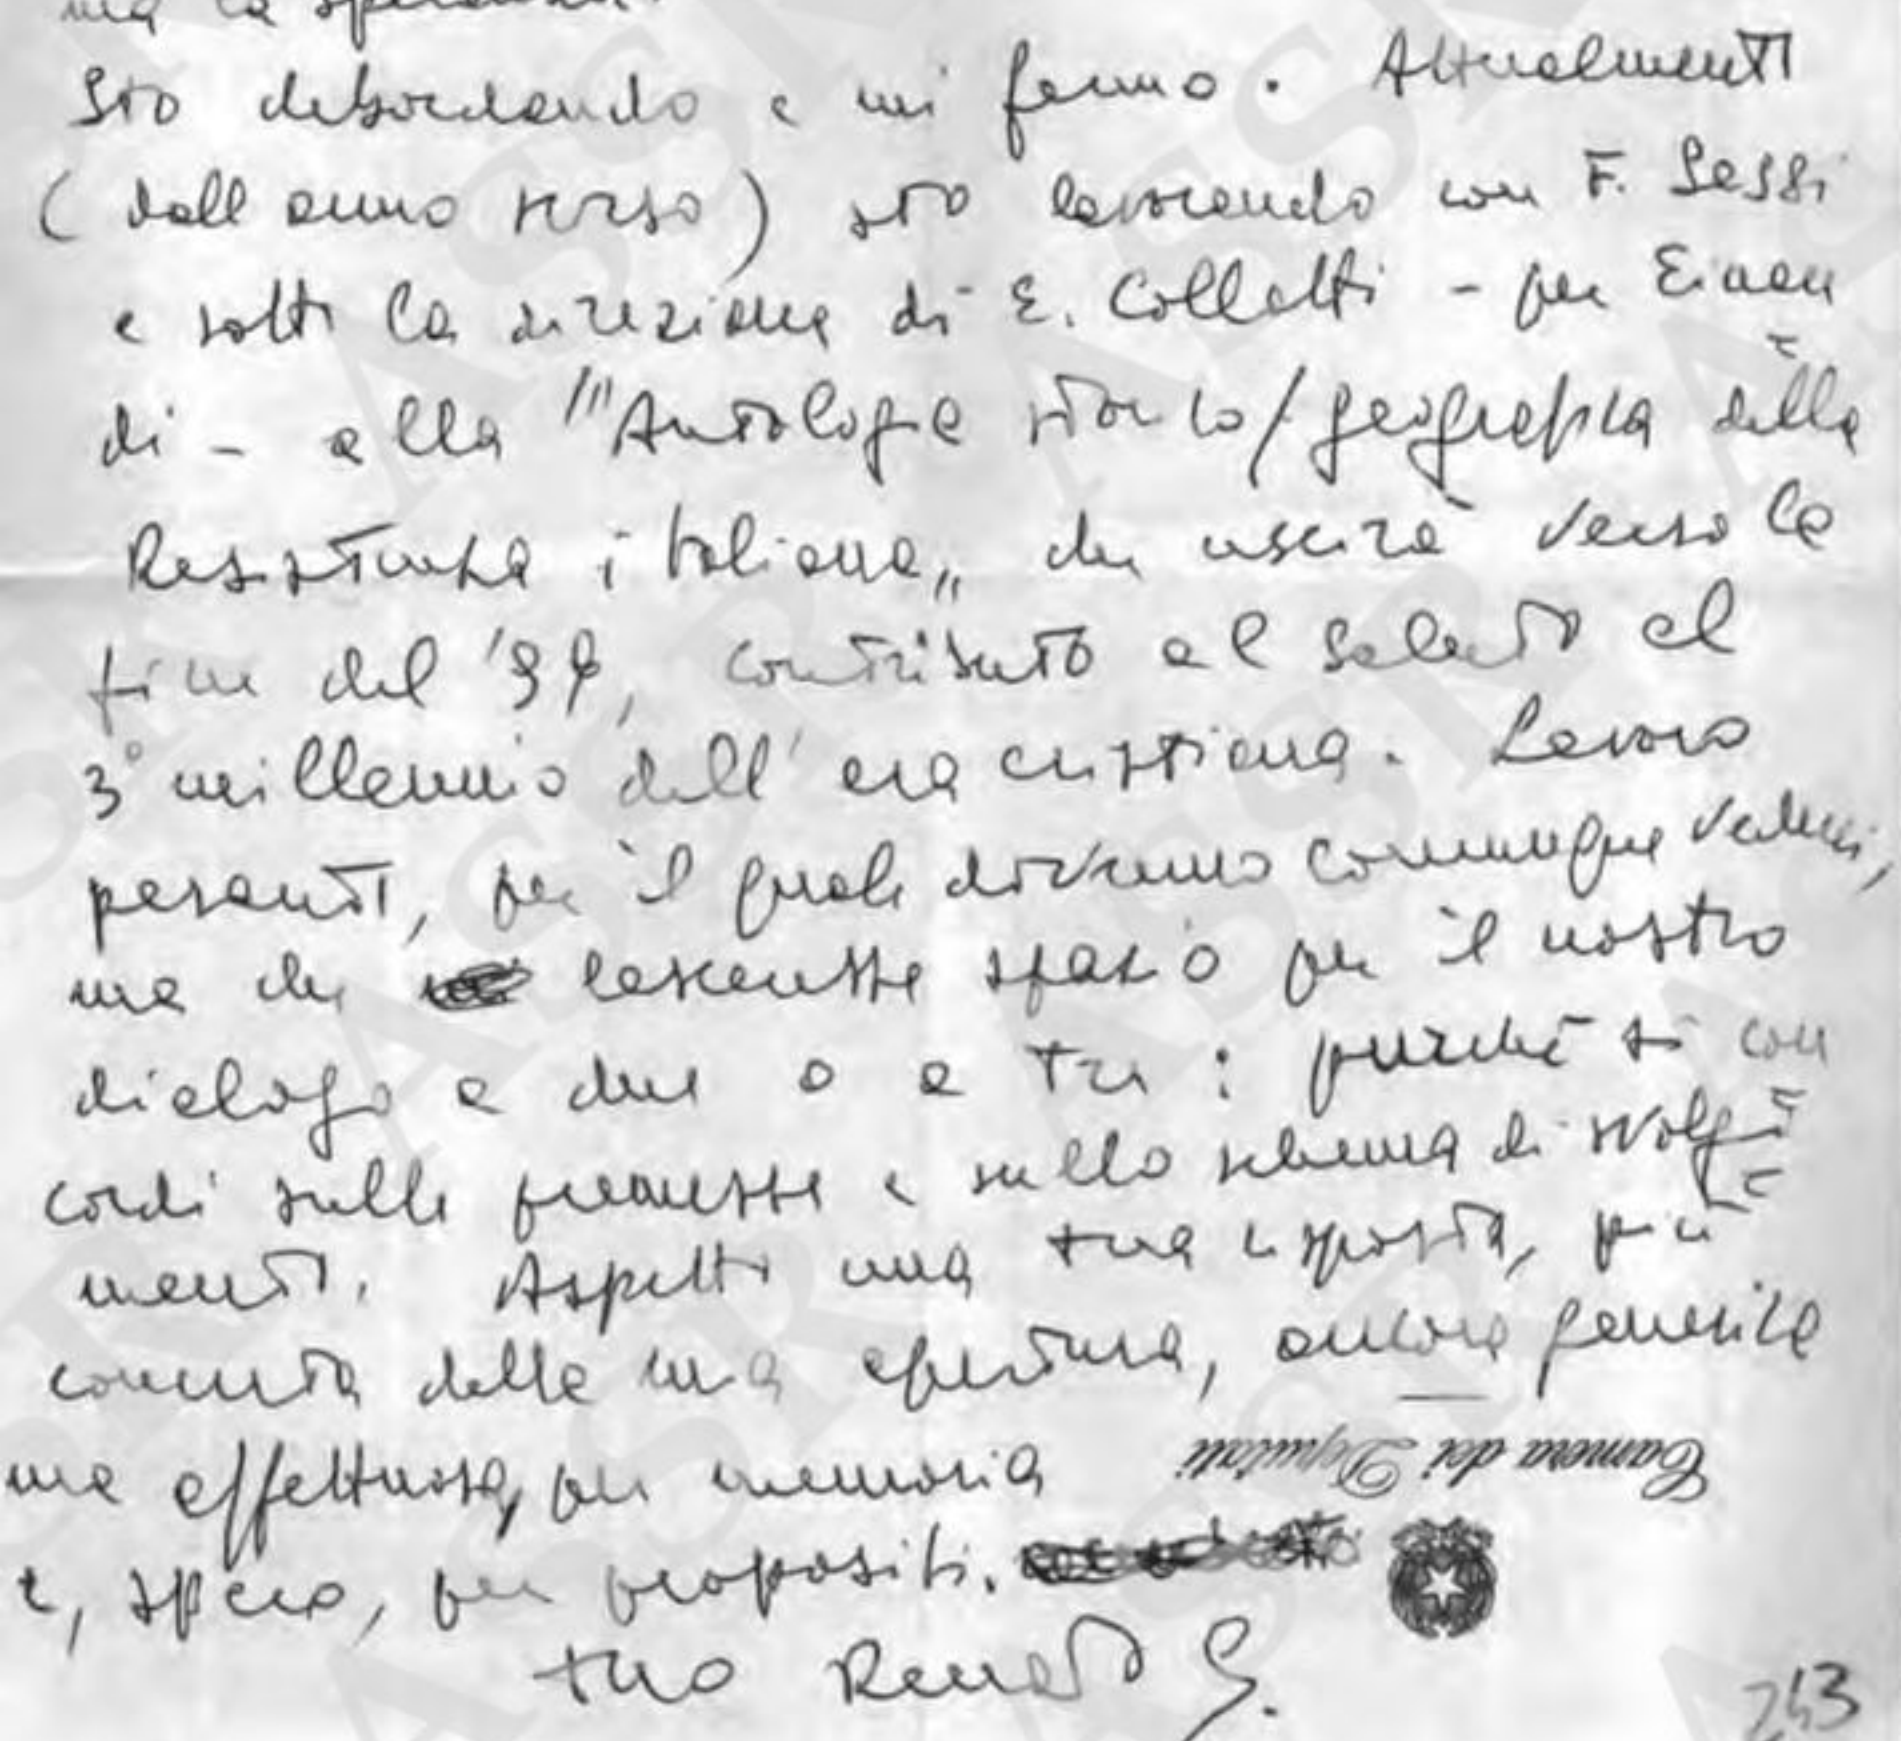 ma la speranza.
Sto debordando e mi fermo. Attualmente
(dall'anno scorso) sto lavorando con F. Sessi
e sotto la direzione di E. Collotti - per Einau
di - alla "Antologia storico/geografica della
Resistenza italiana„ che uscirà verso la
fine del '99, contributo al saluto al
3° millennio dell'era cristiana. Lavoro
pesante, per il quale dovremo comunque vederci,
ma che lascerebbe spazio per il nostro
dialogo a due o a tre: purché si con
cordi sulle premesse e sullo schema di svolgi
mento. Aspetto una tua risposta, più
concreta della mia apertura, ancora generica
ma affettuosa, per memoria
Camera dei Deputati
e, spero, per propositi.
tuo Renato S.
243